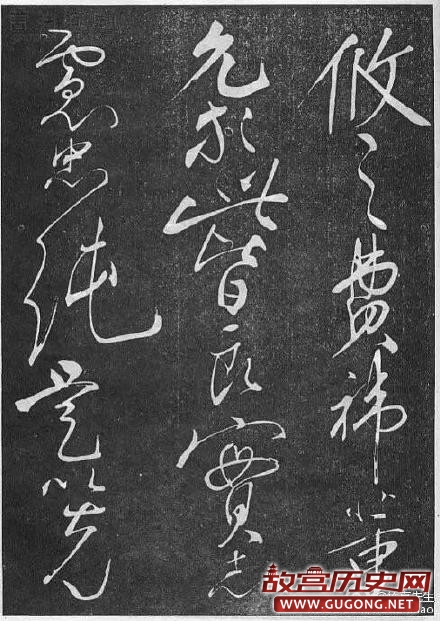 攸之費禕董
允等此皆良實志
慮忠純是以先
故宫历史网
WWW.GUGONG.NET
先生